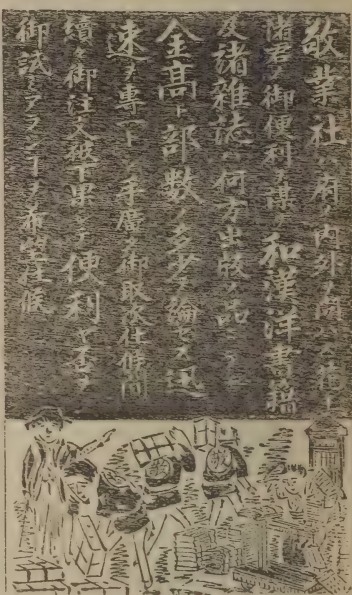 敬業社ハ府ノ内外ヲ問ハズ
諸君ノ御便利ヲ謀リ和漢洋書籍
及諸雑誌ハ何方出版ノ品ニテモ
金高ト部数ノ多少ヲ論セス迅
速ヲ専一トシ手廣ク御取次仕候間
續々御注文被下果シテ便利ヤ否ヲ
御試ミアランヿヲ希望仕候